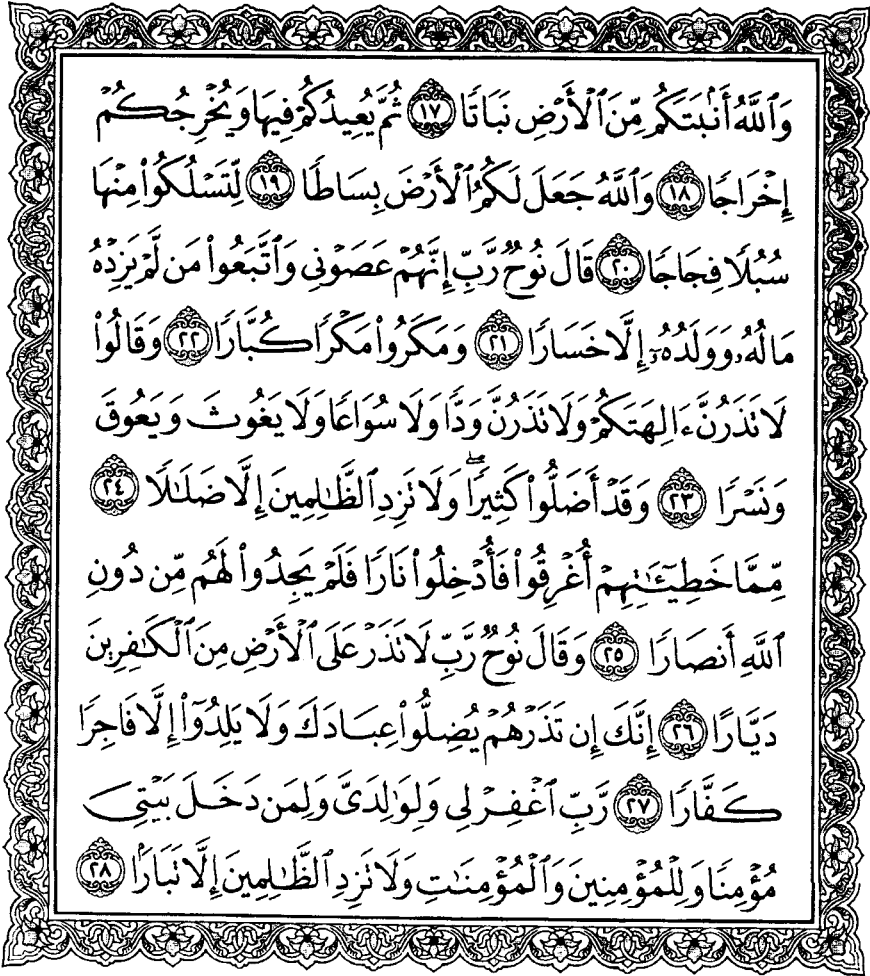 وَٱللَّهُ أَنۢبَتَكُم مِّنَ ٱلْأَرْضِ نَبَاتًا ١٧ ثُمَّ يُعِيدُكُمْ فِيهَا وَيُخْرِجُكُمْ
إِخْرَاجًا ١٨ وَٱللَّهُ جَعَلَ لَكُمُ ٱلْأَرْضَ بِسَاطًا ١٩ لِّتَسْلُكُوا۟ مِنْهَا
سُبُلًا فِجَاجًا ٢٠ قَالَ نُوحٌ رَّبِّ إِنَّهُمْ عَصَوْنِى وَٱتَّبَعُوا۟ مَن لَّمْ يَزِدْهُ
مَالُهُۥ وَوَلَدُهُۥٓ إِلَّا خَسَارًا ٢١ وَمَكَرُوا۟ مَكْرًا كُبَّارًا ٢٢ وَقَالُوا۟
لَا تَذَرُنَّ ءَالِهَتَكُمْ وَلَا تَذَرُنَّ وَدًّا وَلَا سُوَاعًا وَلَا يَغُوثَ وَيَعُوقَ
وَنَسْرًا ٢٣ وَقَدْ أَضَلُّوا۟ كَثِيرًا ۖ وَلَا تَزِدِ ٱلظَّـٰلِمِينَ إِلَّا ضَلَـٰلًا ٢٤
مِّمَّا خَطِيٓـَٔـٰتِهِمْ أُغْرِقُوا۟ فَأُدْخِلُوا۟ نَارًا فَلَمْ يَجِدُوا۟ لَهُم مِّن دُونِ
ٱللَّهِ أَنصَارًا ٢٥ وَقَالَ نُوحٌ رَّبِّ لَا تَذَرْ عَلَى ٱلْأَرْضِ مِنَ ٱلْكَـٰفِرِينَ
دَيَّارًا ٢٦ إِنَّكَ إِن تَذَرْهُمْ يُضِلُّوا۟ عِبَادَكَ وَلَا يَلِدُوٓا۟ إِلَّا فَاجِرًا
كَفَّارًا ٢٧ رَّبِّ ٱغْفِرْ لِى وَلِوَٰلِدَىَّ وَلِمَن دَخَلَ بَيْتِىَ
مُؤْمِنًا وَلِلْمُؤْمِنِينَ وَٱلْمُؤْمِنَـٰتِ وَلَا تَزِدِ ٱلظَّـٰلِمِينَ إِلَّا تَبَارًۢا ٢٨